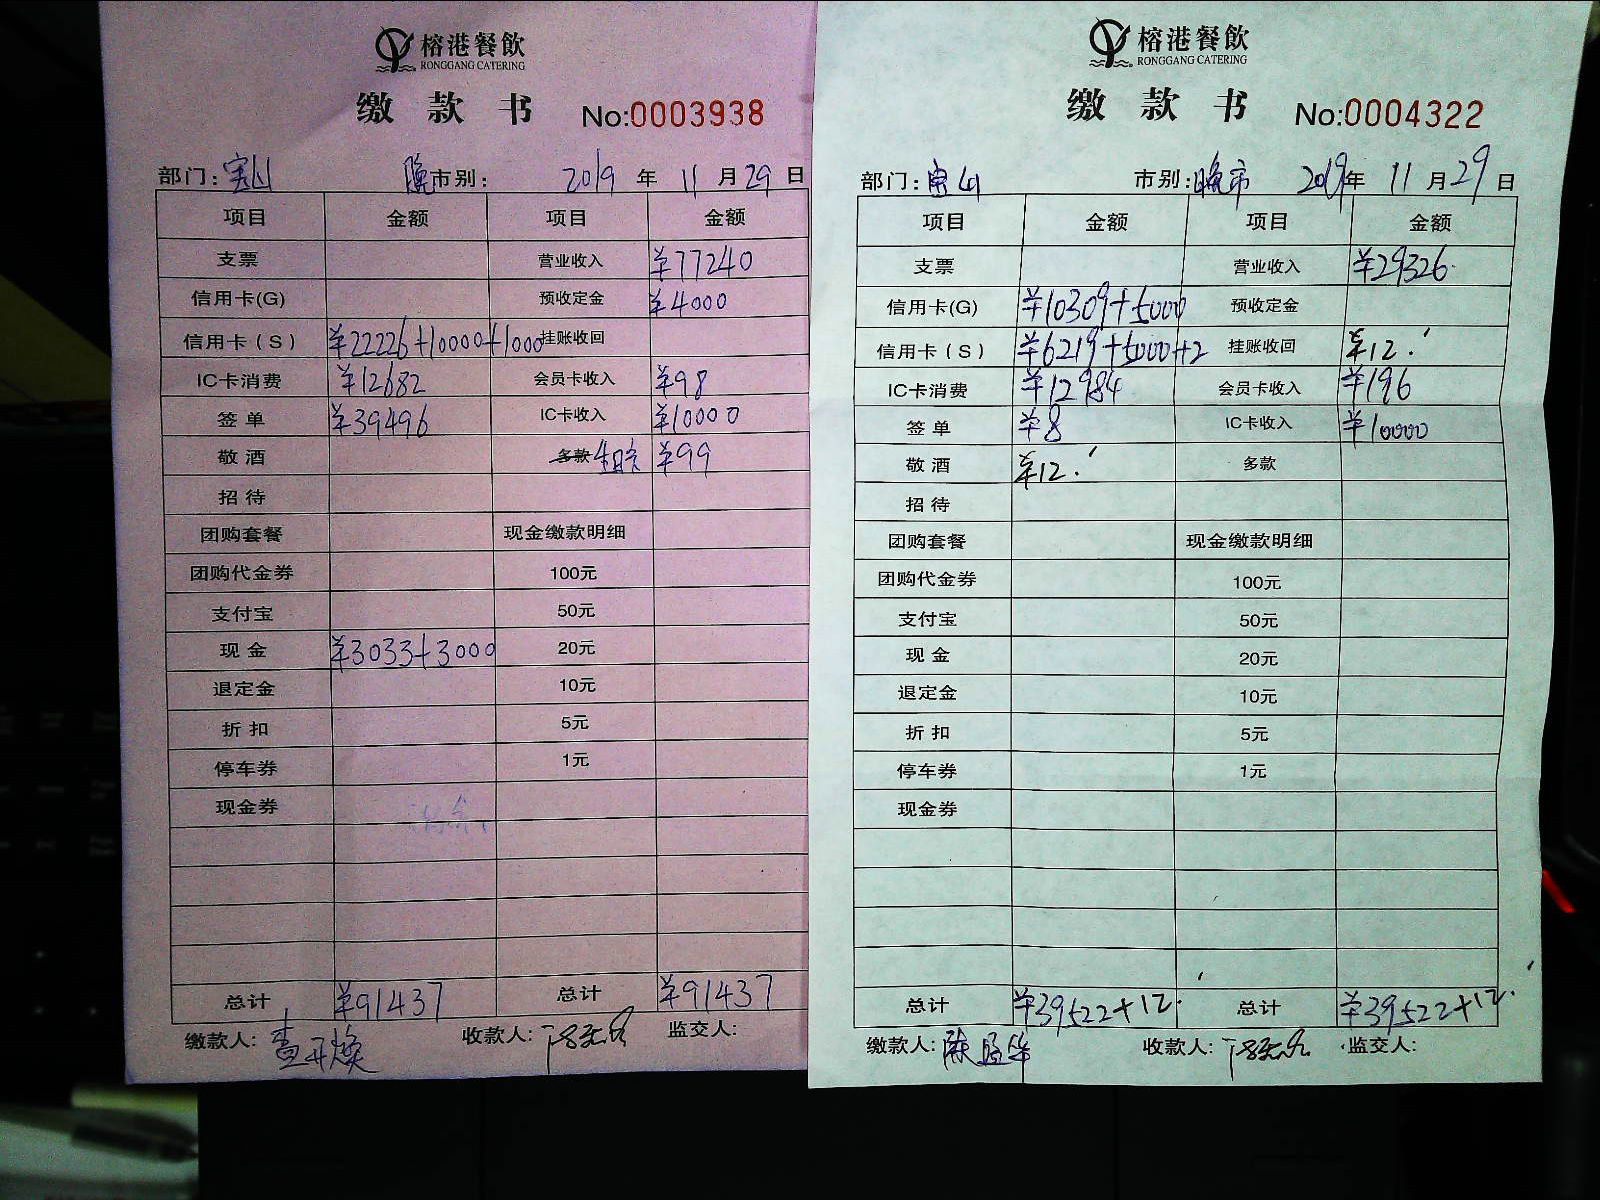 榕港餐飲
RONGGANG CATERING
缴款书 No:0003938
部门:宝山 晚市别: 2019年11月29日
项目 金额 项目 金额
支票 营业收入 ¥77240
信用卡(G) 预收定金 ¥4000
信用卡(S) ¥22226+10000+1000 挂账收回
IC卡消费 ¥12682 会员卡收入 ¥98
签单 ¥39496 IC卡收入 ¥10000
敬酒 多款 ¥99
招待
团购套餐 现金缴款明细
团购代金券 100元
支付宝 50元
现金 ¥3033+3000 20元
退定金 10元
折扣 5元
停车券 1元
现金券
总计 ¥91437 总计 ¥91437
缴款人: 收款人: 监交人:
榕港餐飲
RONGGANG CATERING
缴款书 No:0004322
部门:宝山 市别:晚市 2019年11月29日
项目 金额 项目 金额
支票 营业收入 ¥29326.
信用卡(G) ¥10309+5000 预收定金
信用卡(S) ¥6219+5000+2 挂账收回 ¥12.
IC卡消费 ¥12984 会员卡收入 ¥196
签单 ¥8 IC卡收入 ¥10000
敬酒 ¥12. 多款
招待
团购套餐 现金缴款明细
团购代金券 100元
支付宝 50元
现金 20元
退定金 10元
折扣 5元
停车券 1元
现金券
总计 ¥39522+12. 总计 ¥39522+12.
缴款人: 收款人: 监交人: